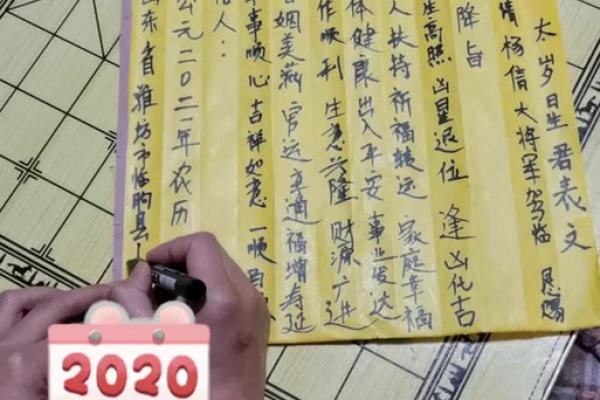 太岁星君表文
请杨信大将军驾临 恩赐
降旨
星高照 凶星退位 逢凶化吉
人扶持 祈福转运 家庭幸福
体健康 出入平安 事业发达
作顺利 生意兴隆 财源广进
姻美满 官运亨通 福增寿延
事顺心 吉祥如意 一顺百
人：
公元二0二一年农历
东省潍坊市临朐县
2020